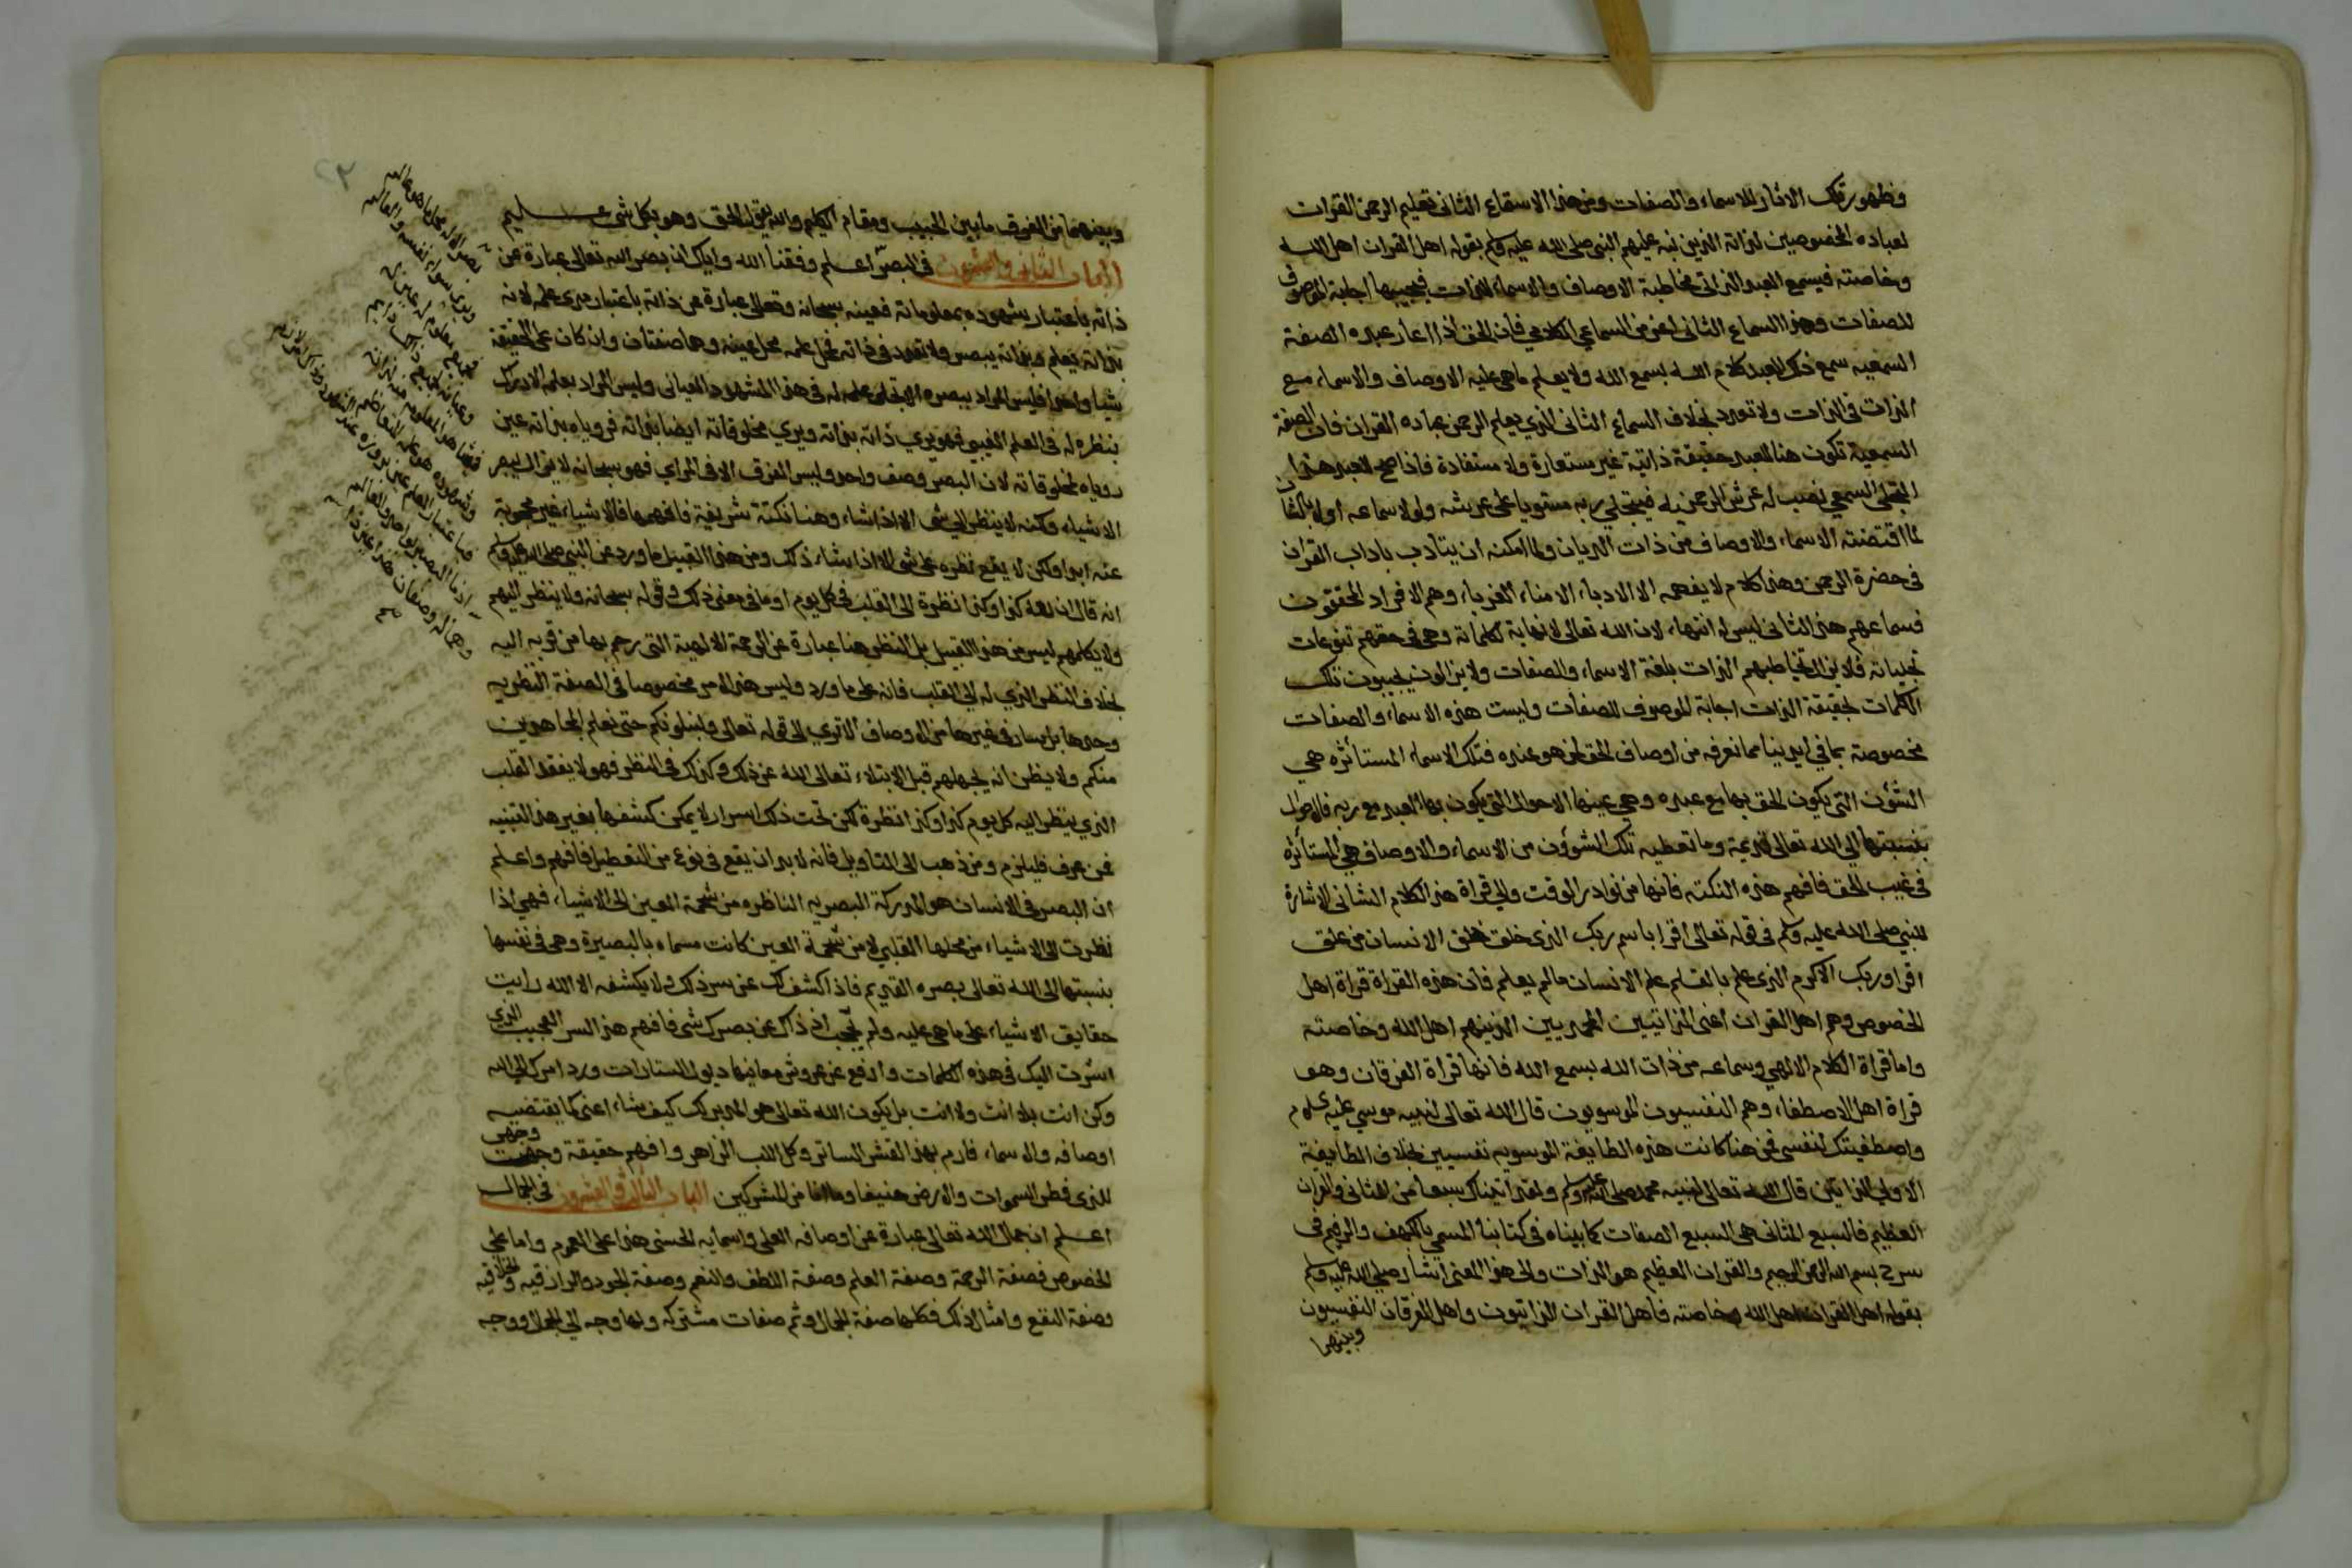 وظهور تلك الاثار للاسماء والصفات ومن هذا الاستماع الثانى تعليم الرحمن القران
لعباده المخصوصين لذاته الذين نبه عليهم النبى صلى الله عليه وسلم بقوله اهل القران اهل الله
وخاصته فيسمع العبد الذاتى مخاطبة الاوصاف والاسماء للذات فيجيبها اجابة الموصوف
للصفات وهذا السماع الثانى اعز من السماع الكلامي فان الحق اذا اعار عبده الصفة
السمعيه سمع ذلك العبد كلام الله بسمع الله ولا يعلم ماهى عليه الاوصاف والاسماء مع
الذات فى الذات ولا تعدد بخلاف السماع الثانى الذي يعلم الرحمن عباده القران فان الصفة
السمعية تكون هنا للعبد حقيقة ذاتية غير مستعارة ولا مستفادة فاذا صح للعبد هذا
التجلى السمعي نصب له عرش الرحمن به فيتجلي ربه مستويا على عرشه ولولا سماعه اولا بالشان
لما اقتضته الاسماء والاوصاف من ذات الديان ولما امكنه ان يتادب باداب القران
فى حضرة الرحمن وهذا كلام لا يفهمه الا الادباء الامناء الغرباء وهم الافراد المحققون
فسماعهم هذا الثانى ليس له انتهاء لان الله تعالى لا نهاية لكلماته وهى فى حقهم تنوعات
تجلياته فلا يزال يخاطبهم الذات بلغة الاسماء والصفات ولا يزالون يجيبون تلك
الكلمات بحقيقة الذات اجابة الموصوف للصفات وليست هذه الاسماء والصفات
مخصوصة بما في ايدينا مما نعرفه من اوصاف الحق بل هو عنده فتلك الاسماء المستأثره هي
الشؤن التى يكون الحق بها مع عبده وهي عينها الاحوال التى يكون بها العبد مع ربه فالاحوال
بنسبتها الي الله تعالى قديمة وما تعطيه تلك الشوون من الاسماء والاوصاف هي المستأثره
فى غيب الحق فافهم هذه النكته فانها من نوادر الوقت والي قراة هذا الكلام الثانى الاشارة
للنبي صلى الله عليه وسلم فى قوله تعالى اقرا باسم ربك الذى خلق خلق الانسان من علق
اقرا وربك الاكرم الذى علم بالقلم علم الانسان مالم يعلم فان هذه القراة قراة اهل
الخصوص وهم اهل القران اعنى الذاتيين المحمديين الذينهم اهل الله وخاصته
واما قراة الكلام الالهي وسماعه من ذات الله بسمع الله فانها قراة الفرقان وهو
قراة اهل الاصطفاء وهم النفسيون الموسويون قال الله تعالى لنبيه موسي عليه السلام
واصطفيتك لنفسى فمن هنا كانت هذه الطايفة الموسويه نفسيين بخلاف الطايفة
الاولي الذاتيين قال الله تعالى لنبيه محمد صلى الله عليه وسلم ولقد اتيناك سبعا من المثانى والقران
العظيم فالسبع المثانى هى السبع الصفات كما بيناه فى كتابنا المسمي بالكهف والرقيم فى
سرح بسم الله الرحمن الرحيم والقران العظيم هو الذات والى هذا المعنى اشار صلى الله عليه وسلم
بقوله اهل القران اهل الله وخاصته فاهل القران الذاتيون واهل الفرقان النفسيون
وبينهما
وبينهما من الفرق ما بين الحبيب ومقام الكليم والله يقول الحق وهو بكل شى عليم
الباب الثانى والعشرون فى البصر اعلم وفقنا الله واياك ان بصر الله تعالى عبارة عن
ذاته باعتبار شهوده بمعلوماته فعينه سبحانه وتعالى عبارة عن ذاته باعتبار مبدى علمه لانه
بذاته يعلم وبذاته يبصر ولا تعدد فى ذاته فمحل علمه محل عينه وهما صفتان وان كان على الحقيقة
شيا واحدا فليس المراد ببصره الا تجلى علمه له فى هذا المشهود العيانى وليس المراد بعلمه الا ادراك
بنظره له فى العلم الغيبي فهو يري ذاته بذاته ويري مخلوقاته ايضا بذاته فروياه بذاته عين
روياه لمخلوقاته لان البصر وصف واحد وليس الفرق الا فى المراي فهو سبحانه لا يزال يبصر
الاشياء ولكنه لا ينظر الي شى الا اذا شاء وهنا نكتة شريفة فافهمها فالاشياء غير محجوبة
عنه ابدا ولكن لا يقع نظره على شى الا اذا شاء ذلك ومن هذا القبيل ما ورد عن النبي صلى الله عليه وسلم
انه قال ان لله كذا وكذا نظرة الى القلب فى كل يوم او ما فى معنى ذلك وقوله سبحانه ولا ينظر اليهم
ولا يكلمهم ليس من هذا القبيل بل النظر هنا عبارة عن الرحمة الالهية التى رحم بها من قربه اليه
بخلاف النظر الذي له الي القلب فانه على ما ورد وليس هذا الامر مخصوصا فى الصفة النظريه
وحدها بل سار فى غيرها من الاوصاف الاتري الى قوله تعالى ولنبلونكم حتى نعلم المجاهدين
منكم ولا يظن انه يجهلهم قبل الابتلاء تعالى الله عن ذلك وكذلك فى النظر فهو لا يفقد القلب
الذي ينظر اليه كل يوم كذا وكذا نظرة لكن تحت ذلك اسرار لا يمكن كشفها بغير هذا التنبيه
فمن عرف فليلزم ومن ذهب الى التاويل فانه لابد ان يقع فى نوع من التعطيل فافهم واعلم
ان البصر فى الانسان هو المدركة البصريه الناظره من شحمة العين الى الاشياء فهي اذا
نظرت الى الاشياء من محلها القلبي لا من شحمة العين كانت مسماه بالبصيرة وهى فى نفسها
بنسبتها الى الله تعالى بصره القديم فاذا كشف لك عن سر ذلك ولا يكشفه الا الله رايت
حقايق الاشياء على ماهى عليه ولم يحجب اذ ذاك عن بصرك شى فافهم هذا السر العجيب الذى
اشرت اليك فى هذه الكلمات وارفع عن عروش معانيها ذيول الستارات ورد امرك الي الله
وكن انت بلا انت ولا انت بل يكون الله تعالى هو المدبر لك كيف يشاء اعنى كما يقتضيه
اوصافه والاسماء فارم بهذا القشر الساتر وكل اللب الزاهر وافهم حقيقة وجهت وجهى
للذى فطر السموات والارض حنيفا وما انا من المشركين الباب الثالث والعشرون فى الجمال
اعلم ان جمال الله تعالى عبارة عن اوصافه العلى واسمايه الحسنى هذا على العموم واما على
الخصوص فصفة الرحمة وصفة العلم وصفة اللطف والنعم وصفة الجود والرازقيه والخلاقيه
وصفة النفع وامثال ذلك فكلها صفة الجمال وثم صفات مشتركه ولها وجه الي الجمال ووجه